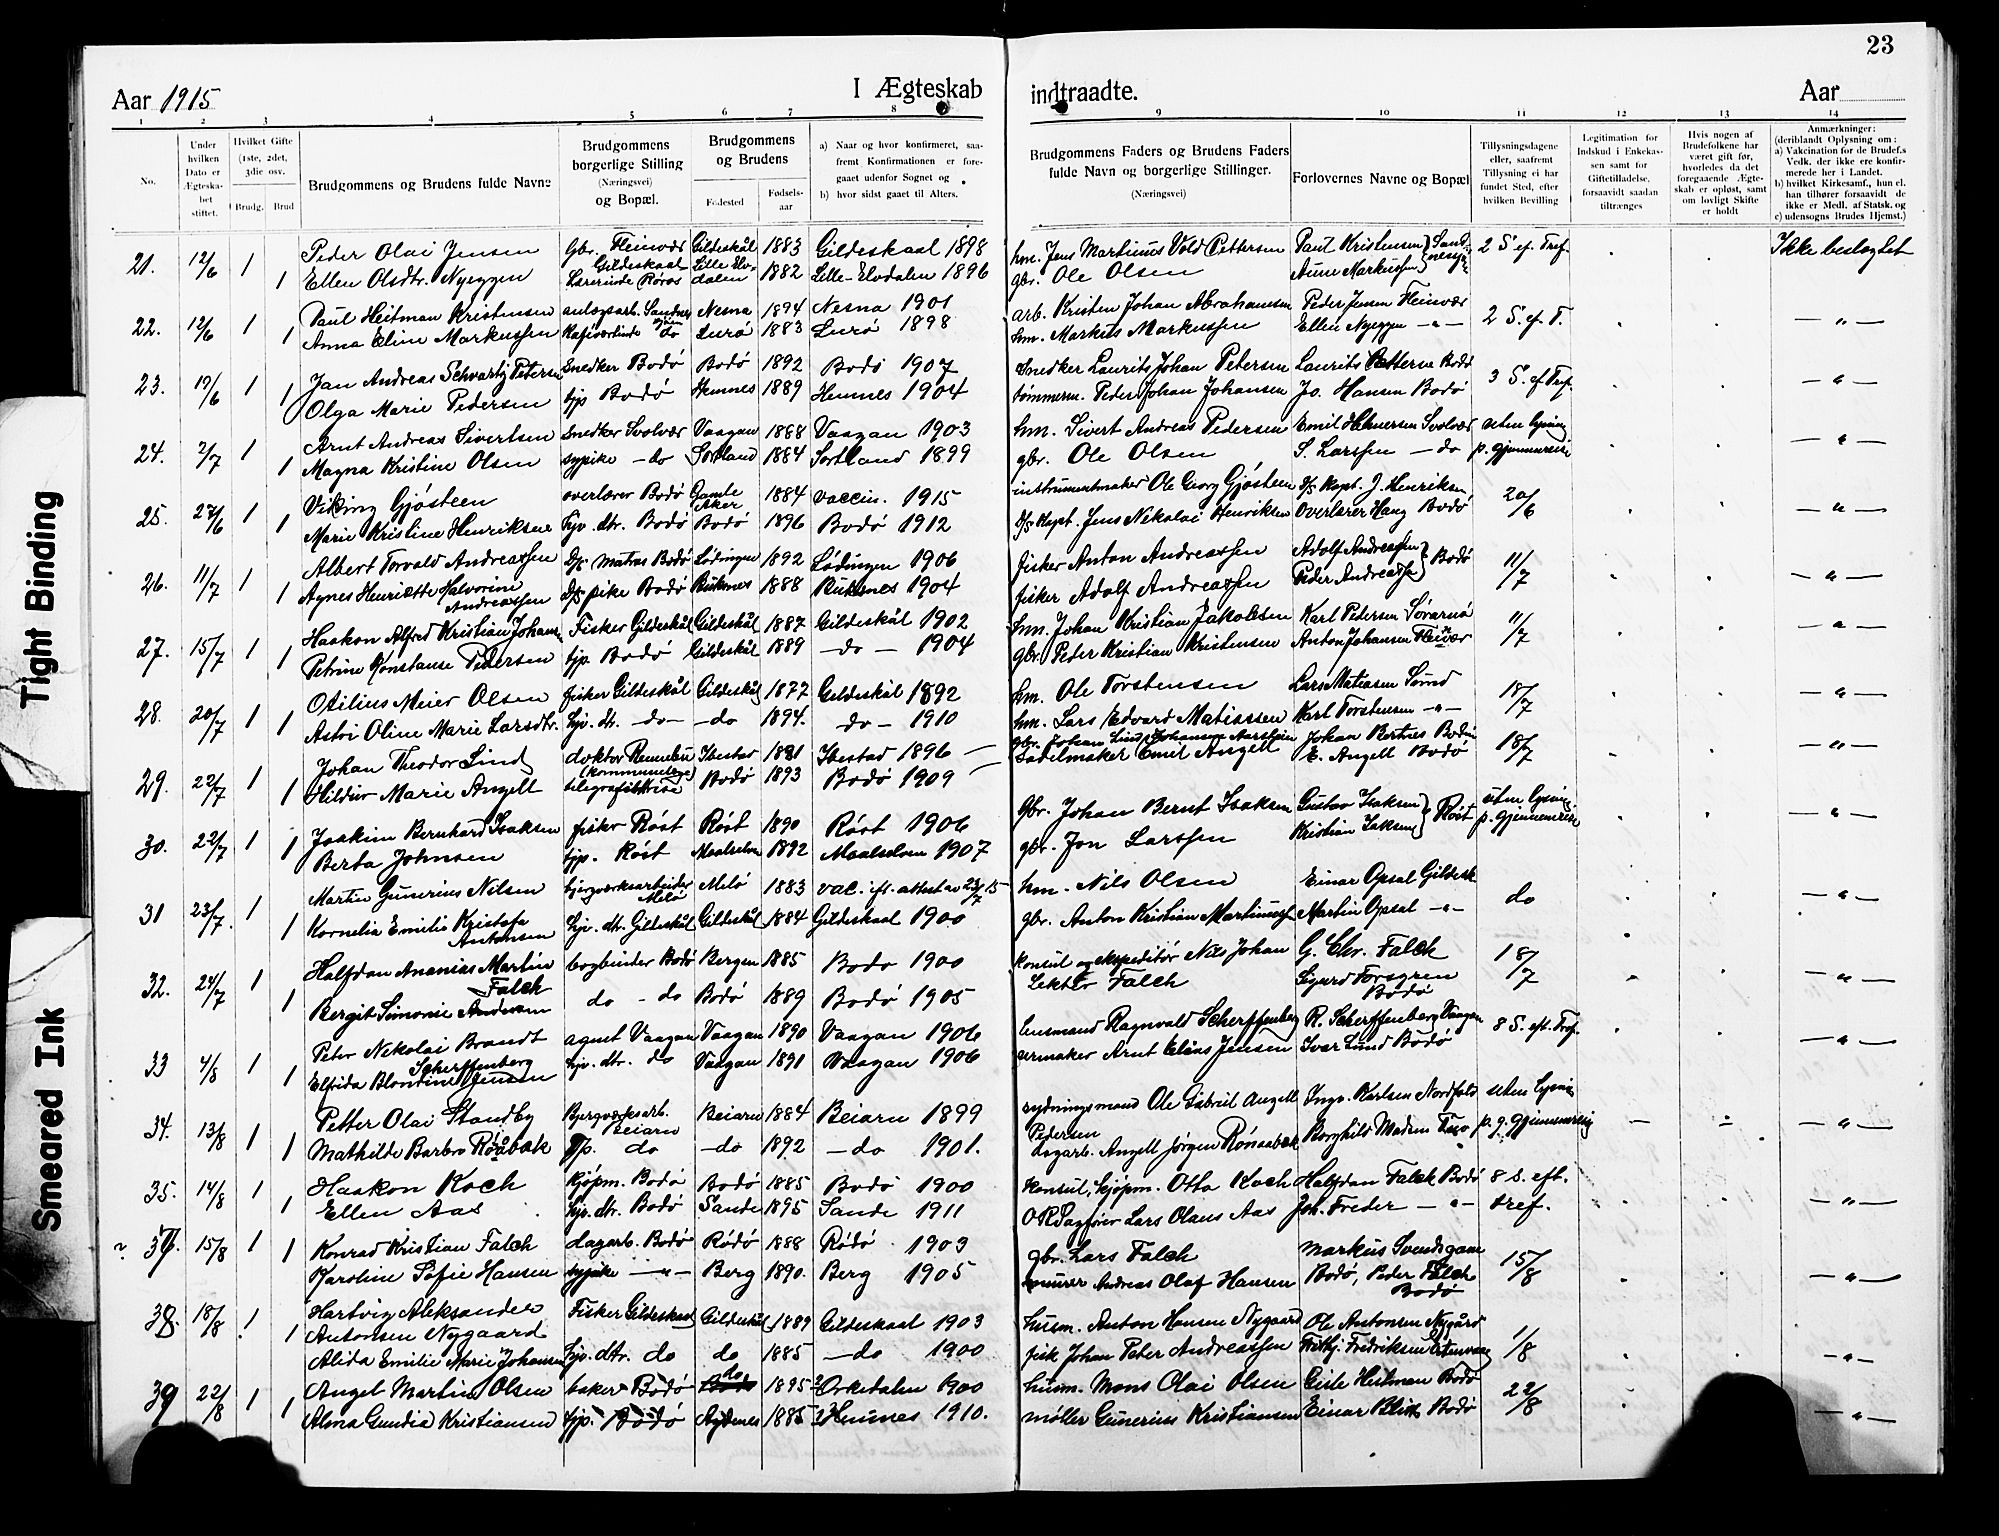 23
Aar 1915
I Ægteskab
indtraadte.
Aar
1 2 3 4 5 6 7 8 9 10 11 12 13 14
No.
Under hvilken Dato er Ægteskabet stiftet.
Hvilket Gifte (1ste, 2det, 3die osv.
Brudg.
Brud
Brudgommens og Brudens fulde Navne
Brudgommens borgerlige Stilling (Næringsvei) og Bopæl.
Brudgommens og Brudens
Fødested
Fødselsaar
a) Naar og hvor konfirmeret, saafremt Konfirmationen er foregaaet udenfor Sognet og
b) hvor sidst gaaet til Alters.
Brudgommens Faders og Brudens Faders fulde Navn og borgerlige Stillinger. (Næringsvei)
Forlovernes Navne og Bopæl
Tillysningsdagene eller, saafremt Tillysning ei har fundet Sted, efter hvilken Bevilling
Legitimation for Indskud i Enkekassen samt for Giftetilladelse, forsaavidt saadan tiltrænges
Hvis nogen af Brudefolkene har været gift før, hvorledes da det foregaaende Ægteskab er opløst, samt om lovligt Skifte er holdt
Anmærkninger: (deriblandt Oplysning om: a) Vakcination for de Brudef.s Vedk. der ikke ere konfirmerede her i Landet. b) hvilket Kirkesamf., hun el. han tilhører forsaavidt de ikke er Medl. af Statsk. og c) udensogns Brudes Hjemst.)
21. 12/6 1 Peder Olai Jensen gbr. Fleinvær Gildeskaal Gildeskål 1883 Gildeskaal 1898 hm. Jens Martinus Vold Pettersen Paul Kristensen 2 S. ef. Tref. Ikke beslægtet
1 Ellen Olsdtr. Nyeggen Lærerinde Røros Lille Elvdalen 1882 Lille-Elvdalen 1896 gbr. Ole Olsen Anne Markussen
22. 12/6 1 Paul Heitman Kristensen Nesna 1894 Nesna 1901 arb. Kristen Johan Abrahamsen Peder Jensen Fleinvær 2 S. ef. T. — " —
1 Anna Eline Markussen do Lurø 1883 Lurø 1898 hm. Markus Markussen Ellen Nyeggen — " —
23. 19/6 1 Jan Andreas Schvartz Petersen Snedker Bodø Bodø 1892 Bodø 1907 Snedker Laurits Johan Petersen Laurits Petterse Bodø 3 S. ef Tref. — " —
1 Olga Marie Pedersen tjp Bodø Hemnes 1889 Hemnes 1904 tømmerm. Peder Johan Johansen Jo. Hansen Bodø
24. 2/7 1 Arnt Andreas Sivertsen Snedker Svolvær Vaagan 1888 Vaagan 1903 hm. Sivert Andreas Pedersen Emil Svolvær uten lysning — " —
1 Magna Kristine Olsen sypike — do Sortland 1884 Sortland 1899 gbr. Ole Olsen S. Larssen — do
25. 27/6 1 Viking Gjøsteen overlærer Bodø Gamle Aker 1884 vaccin. 1915 instrumentmaker Ole Georg Gjøsteen D/S Kapt. J. Henriksen 20/6 — " —
1 Marie Kristine Henriksen hjv. dtr. Bodø Bodø 1896 Bodø 1912 D/S Kapt. Jens Nikolai Henriksen Overlærer Haug Bodø
26. 11/7 1 Albert Torvald Andreassen D/S matros Bodø Lødingen 1892 Lødingen 1906 fisker Anton Andreassen Adolf Andreassen 11/7 — " —
1 Agnes Henriette Halvorine Andreassen D/S pike Bodø 1888 1904 fisker Adolf Andreassen Peder Andreassen Bodø
27. 15/7 1 Haakon Alfred Kristian Johans. Fisker Gildeskål Gildeskål 1887 Gildeskål 1902 hm. Johan Kristian Jakobsen Karl Petersen Sørarnø 11/7 — " —
1 Petrine Konstanse Pedersen tjp. Bodø Gildeskål 1889 — do — 1904 gbr. Peder Kristian Kristensen Anton Johansen Fleinvær
28. 20/7 1 Otilius Meier Olsen fisker Gildeskål Gildeskål 1877 Gildeskål 1892 hm. Ole Torstensen Lars Matiasen Sund 18/7 — " —
1 Astri Oline Marie Larsdtr. hjv. dtr. — do — — do 1894. — do — 1910 hm. Lars Edvard Matiassen Karl Torstensen — " —
29. 22/7 1 Johan Theodor Lind doktor Rennebu (kommunelæge) Ibestad 1881 Ibestad 1896 — gbr. Johan Lind Johansen Johan Bertnes Bodin 18/7 — " —
1 Hildur Marie Angell telegrafistinde Bodø 1893 Bodø 1909 — Sadelmaker Emil Angell E. Angell Bodø
30. 22/7 1 Joakim Bernhard Isaksen fisker Røst Røst 1890 Røst 1906 gbr. Johan Bernt Isaksen Gustav Isaksen uten lysning — " —
1 Berta Johnsen tjp. Røst Maalselven 1892 Maalselven 1907 gbr. Jon Larssen Kristian Isaksen Røst
31 23/7 1 Martin Gunerius Nilsen bergværksarbeider Melø Melø 1883 vac. ifl. attest av 23/7 15 hm. Nils Olsen Einar Opsal Gildesk. do — " —
1 Kornelia Emilie Kristofa Antonsen hjv. dtr. Gildeskål Gildeskål 1884 Gildeskaal 1900 gbr. Anton Kristian Martinussen Martin Opsal — " —
32. 24/7 1 Halfdan Ananias Martin Falch bogbinder Bodø Bergen 1885 Bodø 1900 konsul og ekspeditør Nils Johan G. Chr. Falch 18/7 — " —
1 Bergit Simonie Andersen do - do Bodø 1889 Bodø 1905 Falch Sigurd Forsgren Bodø
33 4/8 1 Peter Nikolai Brandt Scherffenberg agent Vaagan Vaagan 1890 Vaagan 1906 lensmand Ragnvald Scherffenberg R. Scherffenberg Vaagan 8 S. eft. Tref. — " —
1 Elfrida Blondine Jensen hjv. dtr. do Vaagan 1891 Vaagan 1906 urmaker Arnt Jensen Ivar Lund Bodø
34. 13/8 1 Petter Olai Standby Bergværksarb. Beiarn Beiarn 1884 Beiarn 1899 rydningsmand Ole Gabriel Angell Pedersen Ingv. Karlsen Nordfold uten lysning — " —
1 Mathilde Barbro Røåbæk tjp. do — do 1892 — do 1901. dagarb. Angell Jørgen
35. 14/8 1 Haakon Koch Kjøpm. Bodø Bodø 1885 Bodø 1900 Konsul, kjøpm. Otto Koch Halfdan Falck Bodø 8 s. eft. tref. — " —
1 Ellen Aas hjv. dtr. Bodø Sande 1895 Sande 1911 O R Sagfører Lars Olaus Aas Joh. Freder — " —
15/8 1 Konrad Kristian Falch dagarb. Bodø Rødø 1888 Rødø 1903 gbr. Lars Falch Markus 15/8 — " —
1 Karoline Sofie Hansen sypike — " — Berg 1890. Berg 1905 murer Andreas Olaf Hansen Bodø, Peder Falch Bodø
38. 18/8 1 Hartvig Aleksander Antonsen Nygaard Fisker Gildeskaal Gildeskål 1889 Gildeskaal 1903 husm. Anton Hansen Nygaard Ole Antonsen Nygård 1/8 — " —
1 Alida Emilie Marie Johansen hjv. dtr. do do 1885 — do 1900 fisk Johan Peter Andreassen Frithj. Fredriksen
39 22/8 1 Angel Martin Olsen baker Bodø do 1895 Orkedalen 1900 husm. Mons Olai Olsen Heitman Bodø 22/8 — " —
1 Alma Gundia Kristiansen tjp. Bodø 1885 Hemnes 1910. møller Gunerius Kristiansen Einar Bodø
Tight Binding
Smeared Ink